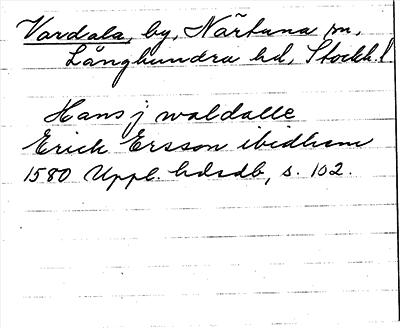 Vardala, by, Närtuna sn,
Långhundra hd, Stockh. l.
Hans j waldalle
Erich Ersson ibidhem
1580 Uppl. hdsdb, s. 102.